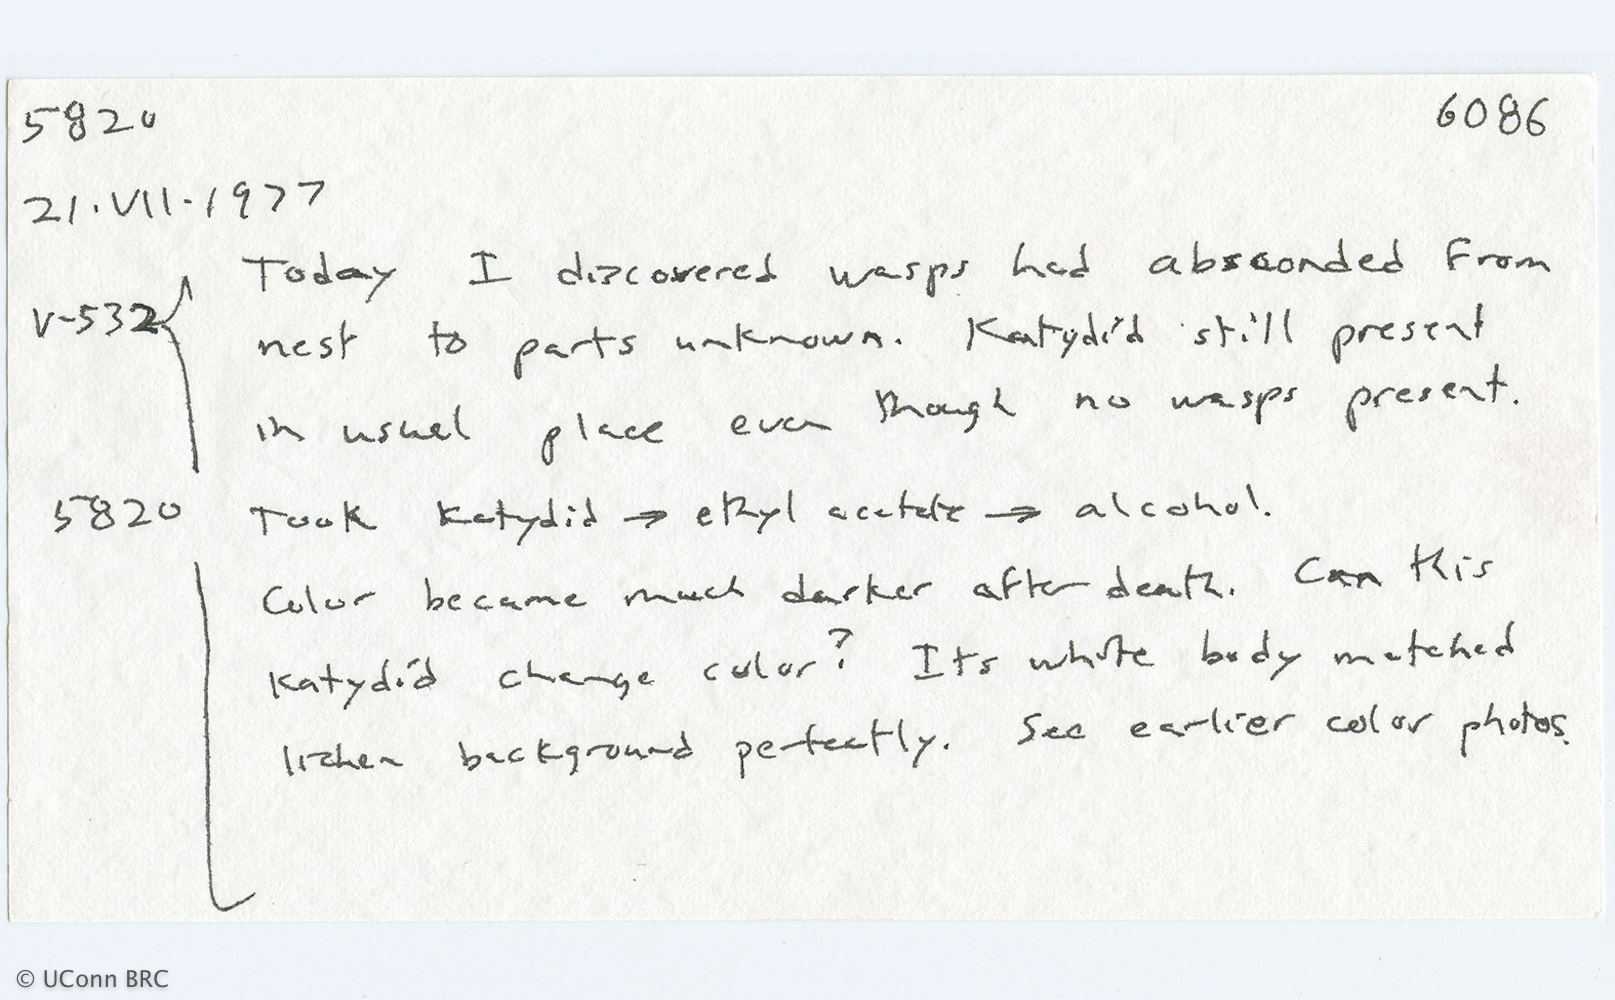 5820 6086
21.VII.1977
Today I discovered wasps had absconded from
V-532 nest to parts unknown. Katydid still present
in usual place even though no wasps present.
5820 Took Katydid → ethyl acetate → alcohol.
Color became much darker after death. Can this
Katydid change color? Its whole body matched
lichen background perfectly. See earlier color photos.
© UConn BRC